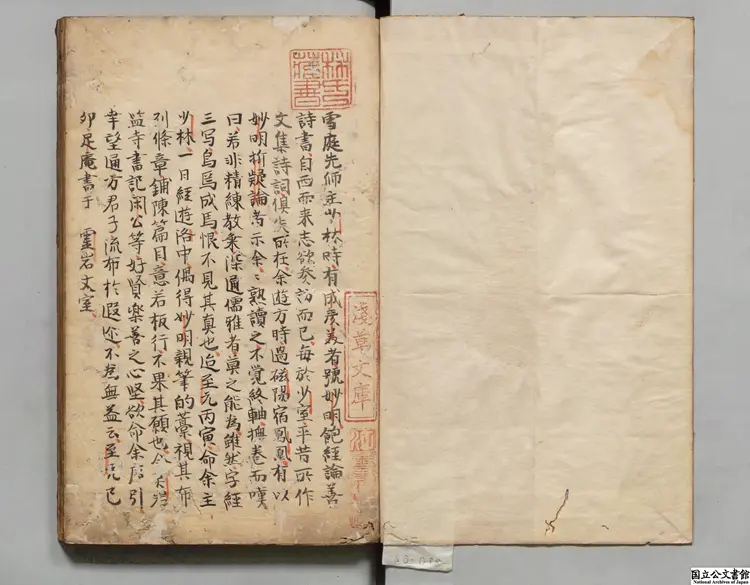 雪庭先師主少林時有成彦美者號妙明飽經論善
詩書自西而来志欲参訪而已每於少室平昔所作
文集詩詞俱失所在余遊方時過磁陽宿鳳凰有以
妙明折疑論爲示余〻熟讀之不覺終軸撫卷而嘆
曰若非精練教乘深通儒雅者莫之能爲雖然字經
三写烏焉成馬恨不見其真也迨至元丙寅命余主
少林一日經遊洛中偶得妙明親筆的藁視其布
列條章鋪陳篇目意若板行不果其願也
監寺書記闲公等好賢樂善之心坚欲命余引
幸望通方君子流布於遐迩不無益云至元已
卯足庵書于　靈岩丈室
林氏藏書
淺草文庫
国立公文書館
National Archives of Japan